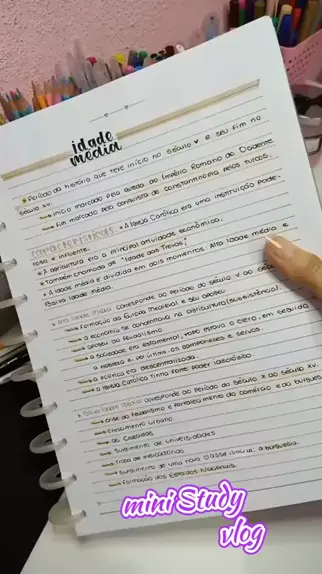 idade
média
* Período da história que teve início no século V e seu fim no
século XV.
início marcado pela queda do Império Romano do Ocidente
Fim marcado pela conquista de Constantinopla pelos turcos.
características: * A Igreja Católica era uma instituição pode-
rosa e influente.
* A agricultura era a principal atividade econômica.
* Também chamada de "Idade das Trevos".
* A idade média é dividida em dois momentos: Alta Idade Média e
Baixa Idade Média.
* Alta Idade Média: corresponde ao período do século V ao
Formação da Europa Medieval e seu apogeu.
a economia se concentrava na agricultura (subsistência).
apogeu do feudalismo
a sociedade era estamental, topo estava o clero, em seguida
a nobreza e, por último, os camponeses e servos.
a política era descentralizada.
a Igreja Católica tinha forte poder ideológico.
* Baixa Idade Média: corresponde ao período do século X ao século XV.
crise do feudalismo e fortalecimento do comércio e da burgues
crescimento urbano
as cruzadas
surgimento de universidades
troca de mercadorias
surgimento de uma nova classe social, a burguesia.
Formação dos Estados Nacionais.
mini Study
vlog